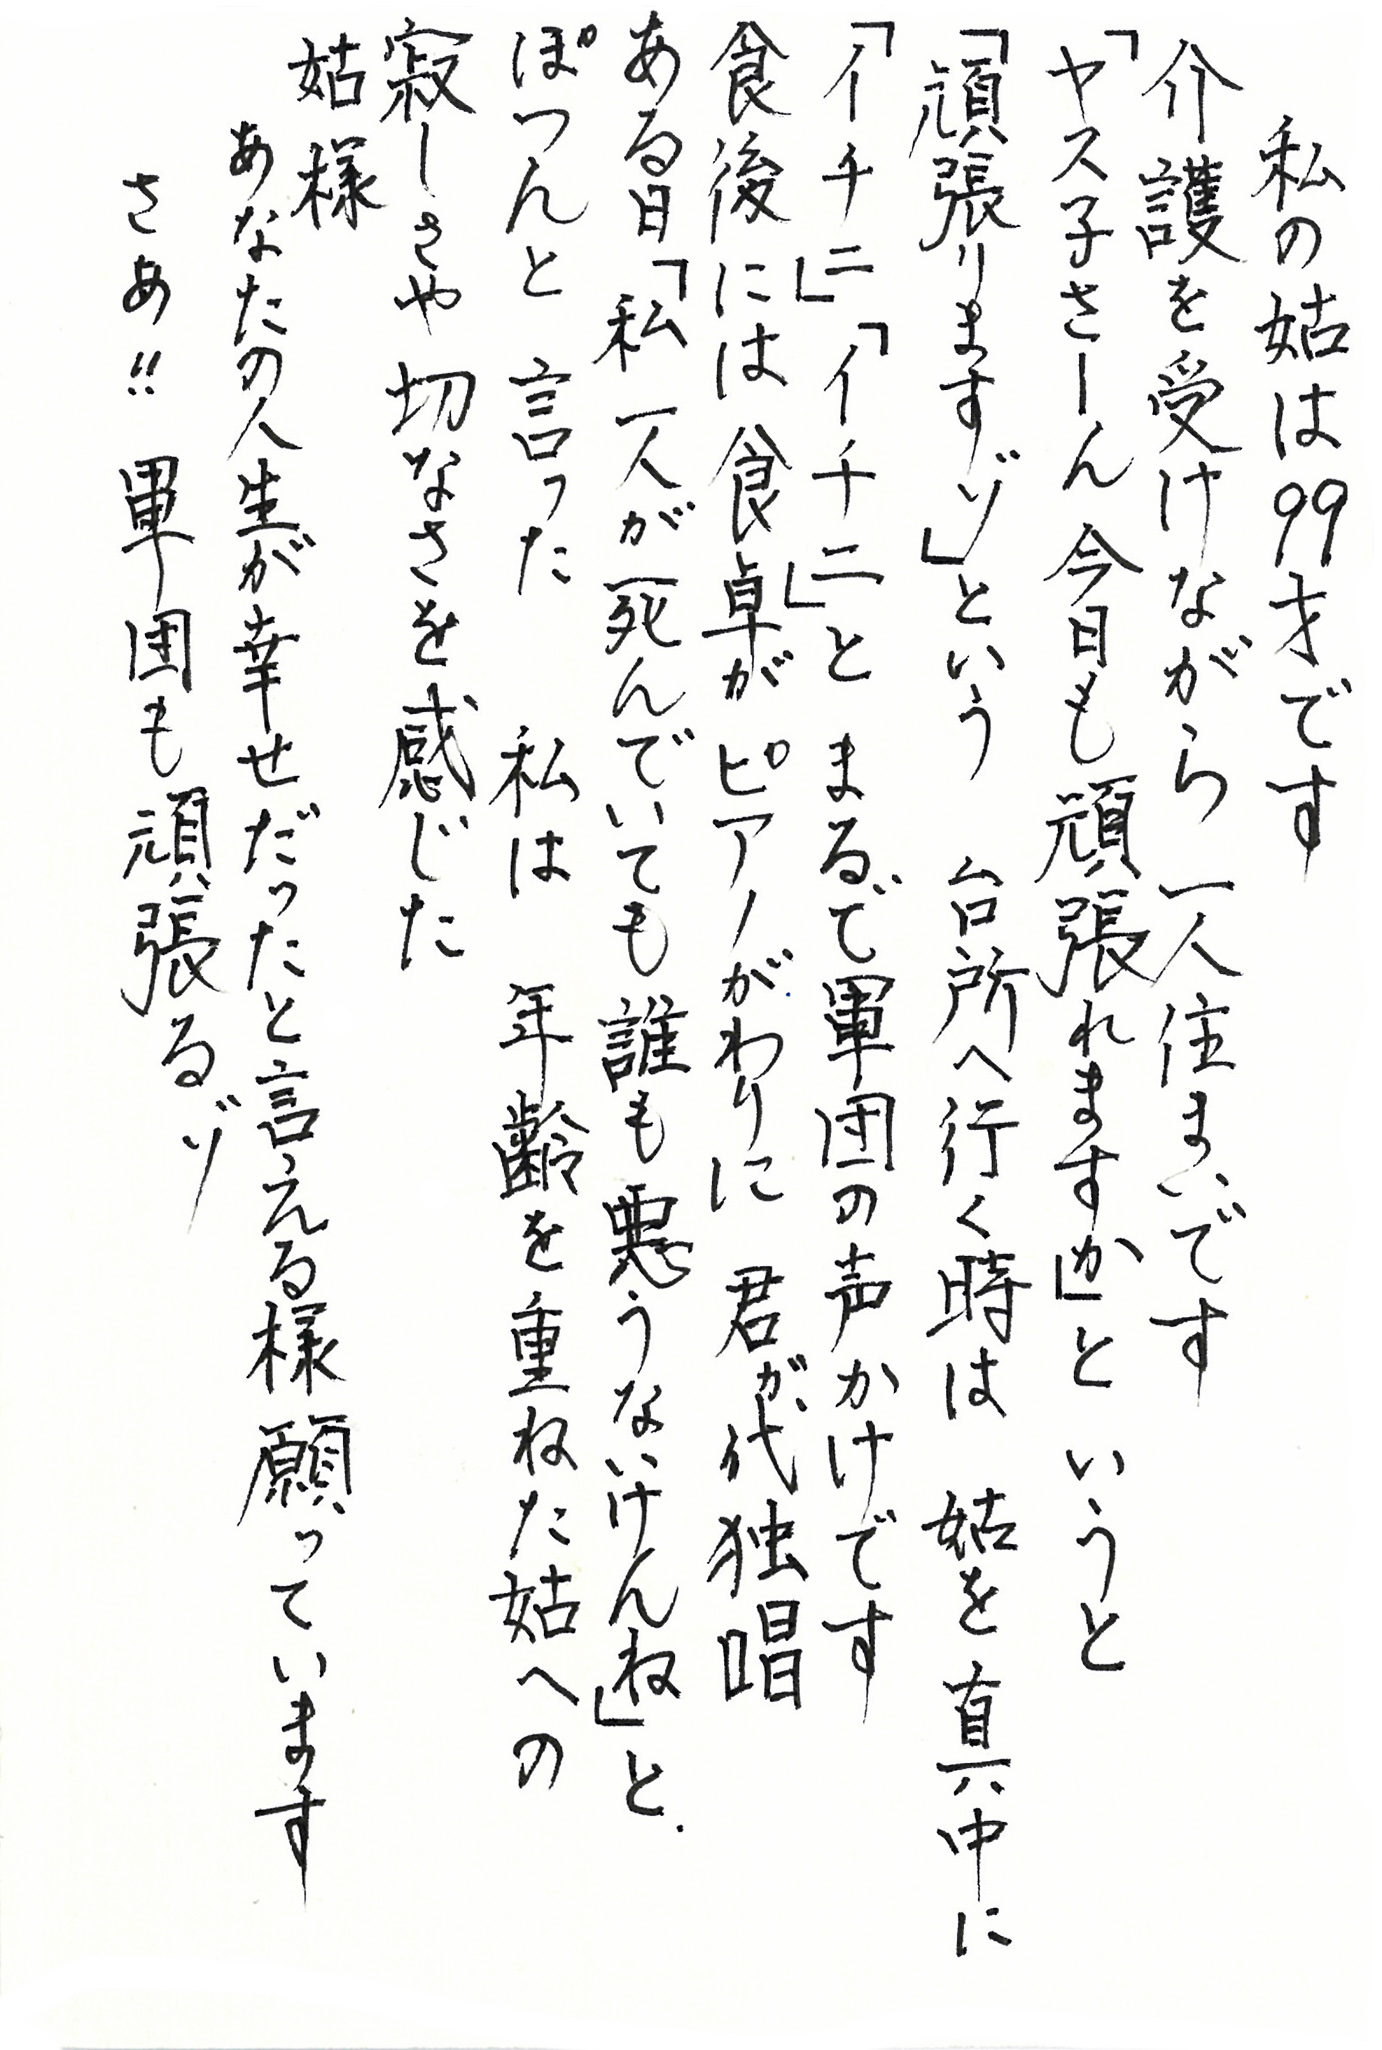 私の姑は99才です
介護を受けながら一人住まいです
「ヤス子さーん今日も頑張れますか」と いうと
「頑張りますゾ」という 台所へ行く時は 姑を真中に
「イチニ」「イチニ」と まるで軍団の声かけです
食後には食卓がピアノがわりに 君が代独唱
ある日「私一人が死んでいても誰も悪うないけんね」と
ぽつんと 言った 私は 年齢を重ねた姑への
寂しさや切なさを感じた
姑様
あなたの人生が幸せだったと言える様願っています
さぁ!! 軍団も頑張るゾ